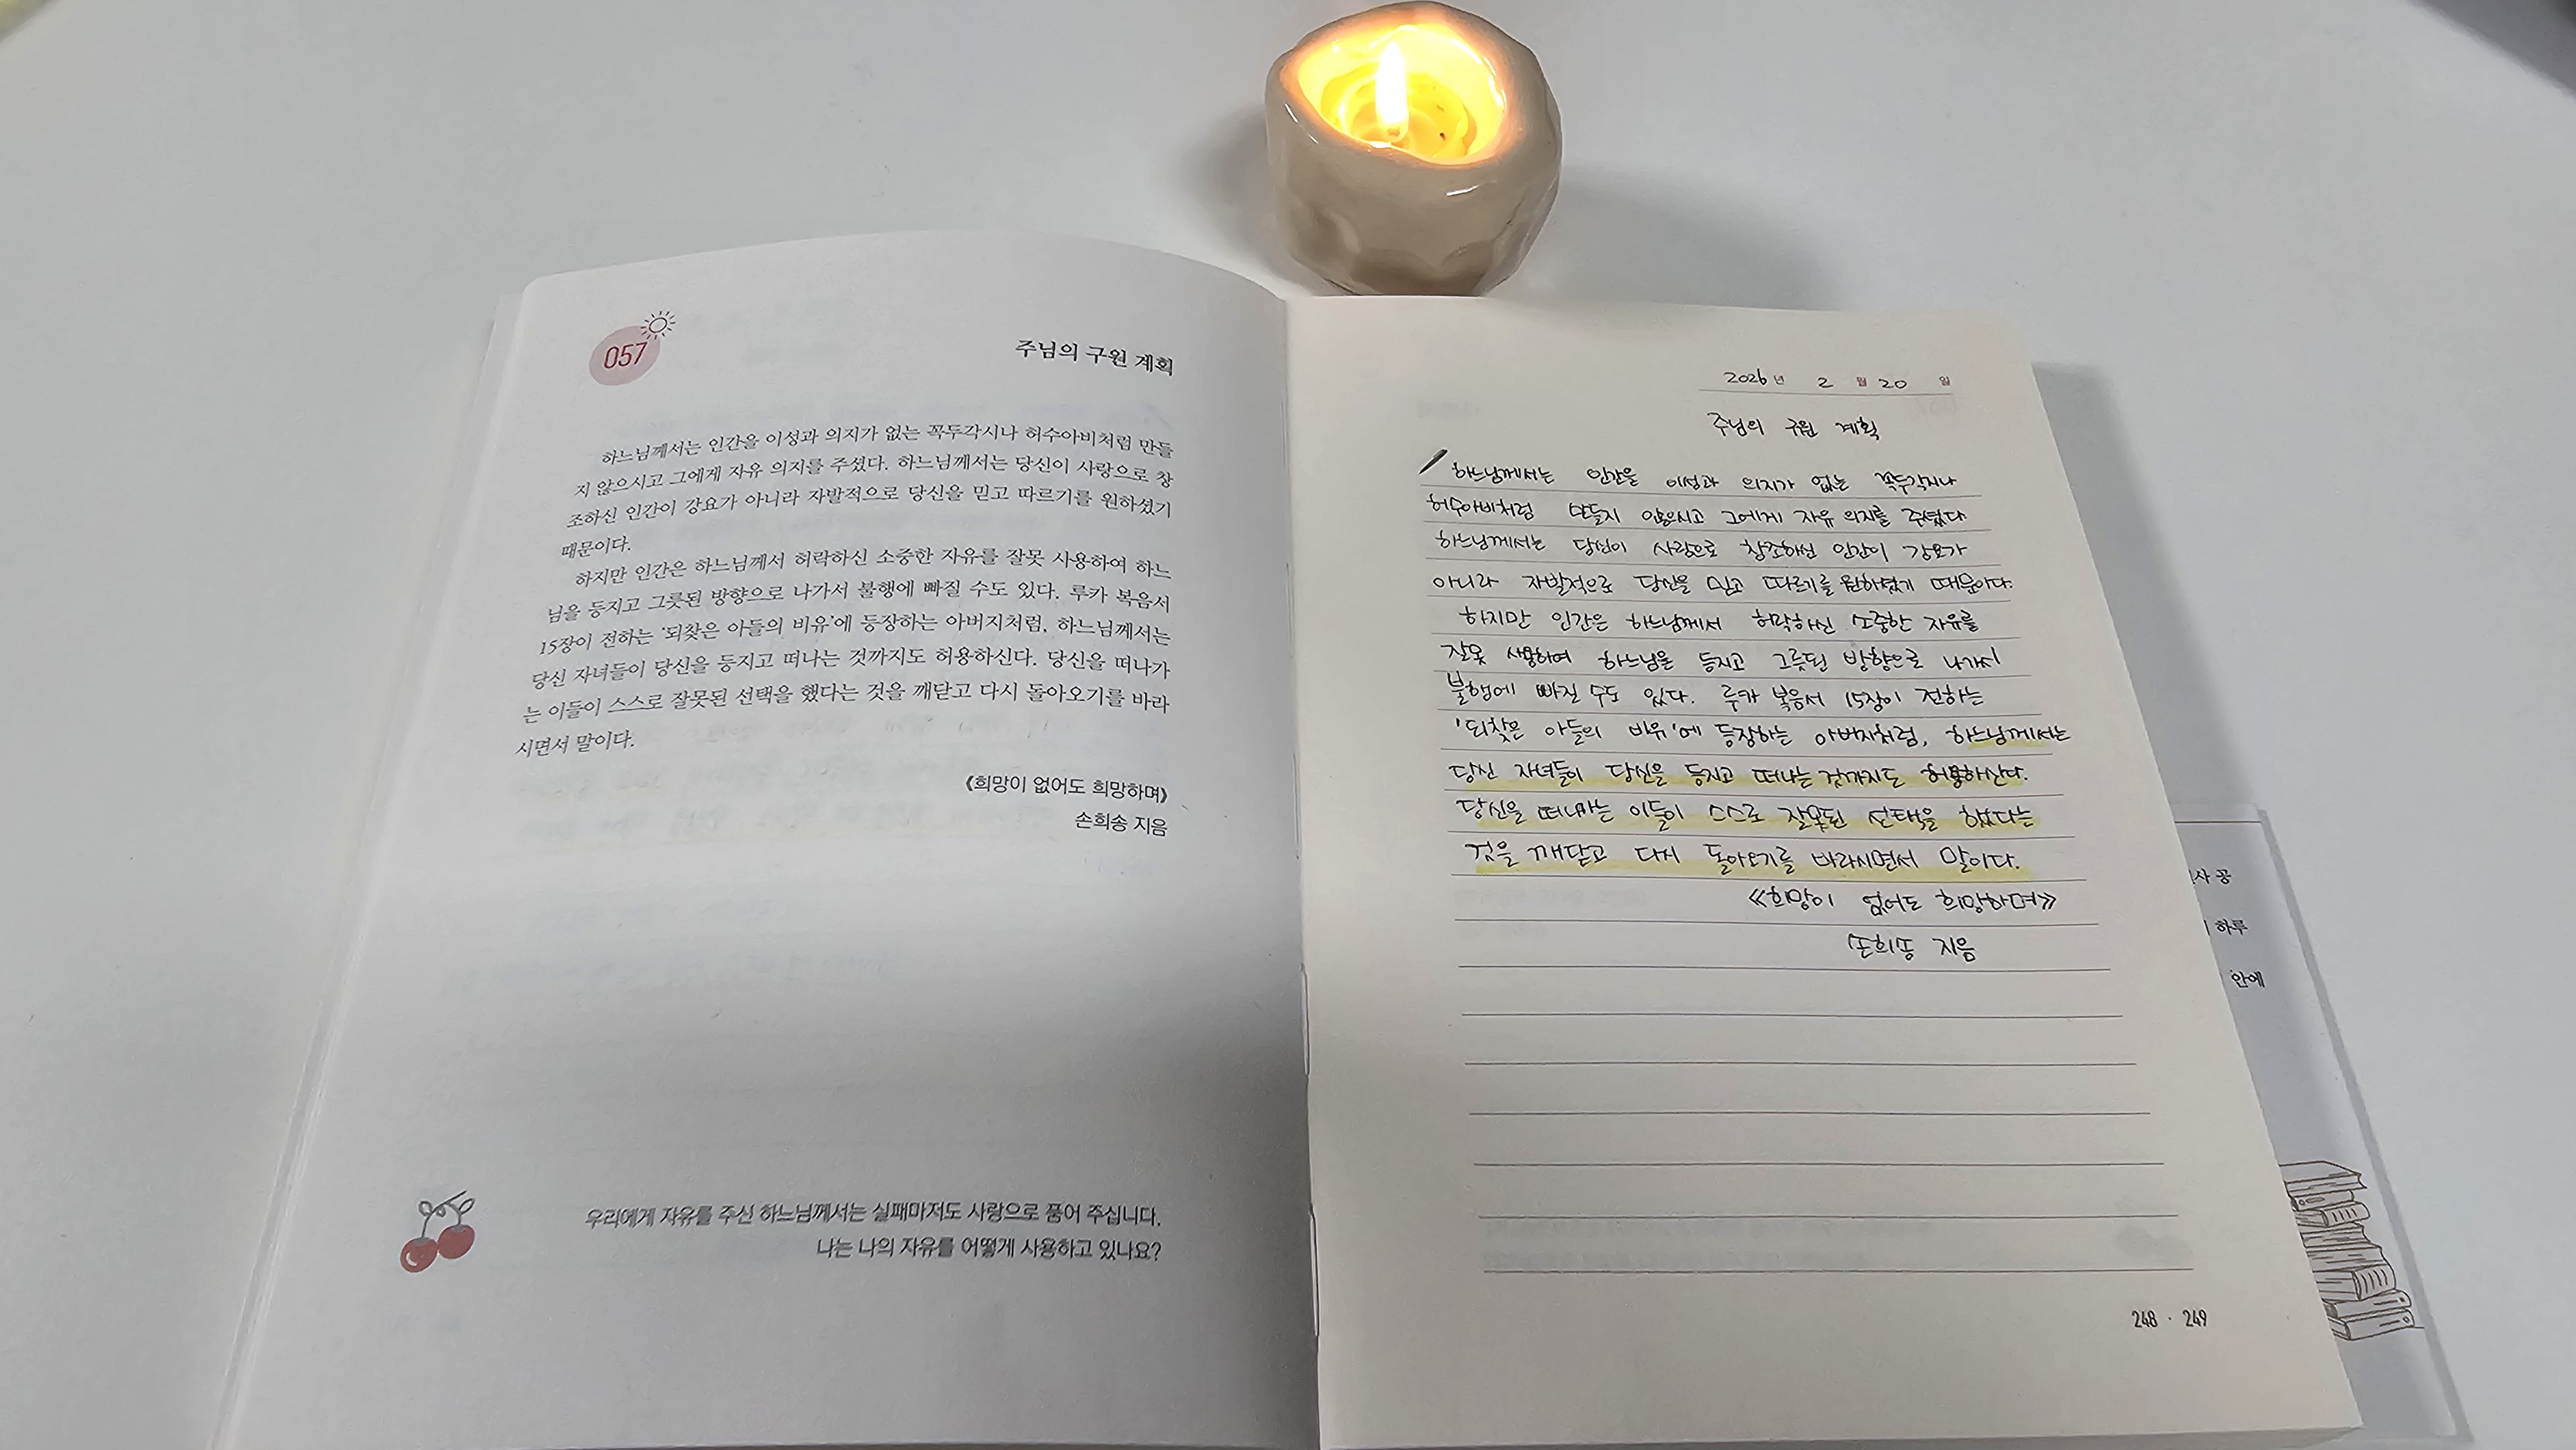 057
주님의 구원 계획
하느님께서는 인간을 이성과 의지가 없는 꼭두각시나 허수아비처럼 만들
지 않으시고 그에게 자유 의지를 주셨다. 하느님께서는 당신이 사랑으로 창
조하신 인간이 강요가 아니라 자발적으로 당신을 믿고 따르기를 원하셨기
때문이다.
하지만 인간은 하느님께서 허락하신 소중한 자유를 잘못 사용하여 하느
님을 등지고 그릇된 방향으로 나가서 불행에 빠질 수도 있다. 루카 복음서
15장이 전하는 ‘되찾은 아들의 비유’에 등장하는 아버지처럼, 하느님께서는
당신 자녀들이 당신을 등지고 떠나는 것까지도 허용하신다. 당신을 떠나가
는 이들이 스스로 잘못된 선택을 했다는 것을 깨닫고 다시 돌아오기를 바라
시면서 말이다.
《희망이 없어도 희망하며》
손희송 지음
우리에게 자유를 주신 하느님께서는 실패마저도 사랑으로 품어 주십니다.
나는 나의 자유를 어떻게 사용하고 있나요?
2026년 2월 20일
주님의 구원 계획
하느님께서는 인간을 이성과 의지가 없는 꼭두각시나
허수아비처럼 만들지 않으시고 그에게 자유 의지를 주셨다
하느님께서는 당신이 사랑으로 창조하신 인간이 강요가
아니라 자발적으로 당신을 믿고 따르기를 원하셨기 때문이다.
하지만 인간은 하느님께서 허락하신 소중한 자유를
잘못 사용하여 하느님을 등지고 그릇된 방향으로 나가서
불행에 빠질 수도 있다. 루카 복음서 15장이 전하는
'되찾은 아들의 비유'에 등장하는 아버지처럼, 하느님께서는
당신 자녀들이 당신을 등지고 떠나는 것까지도 허용하신다.
당신을 떠나가는 이들이 스스로 잘못된 선택을 했다는
것을 깨닫고 다시 돌아오기를 바라시면서 말이다.
《희망이 없어도 희망하며》
손희송 지음
248 · 249
공
하루
안에